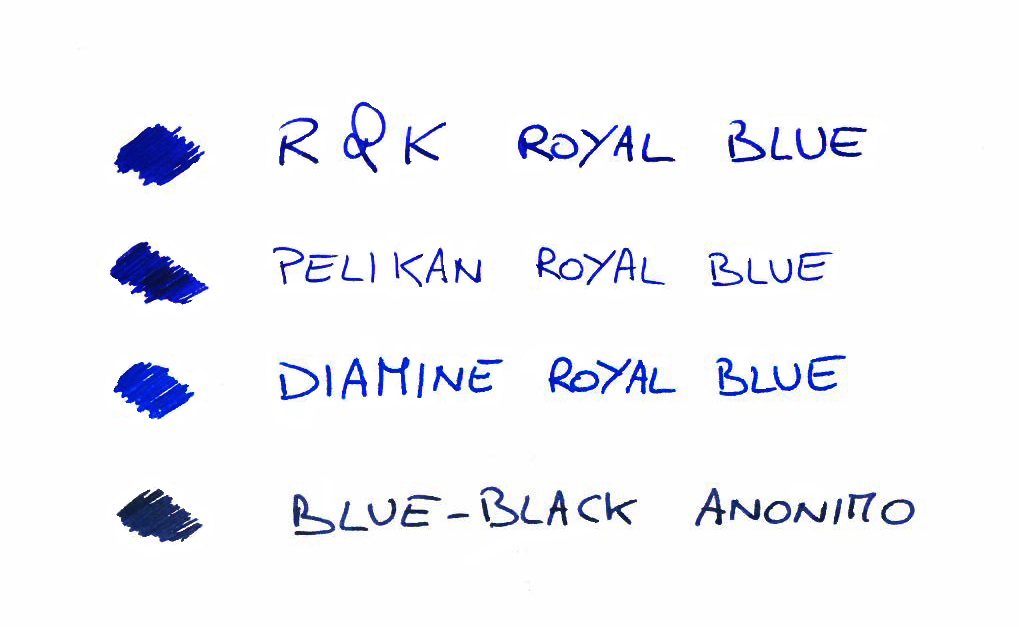 R & K ROYAL BLUE
PELIKAN ROYAL BLUE
DIAMINE ROYAL BLUE
BLUE-BLACK ANONIMO